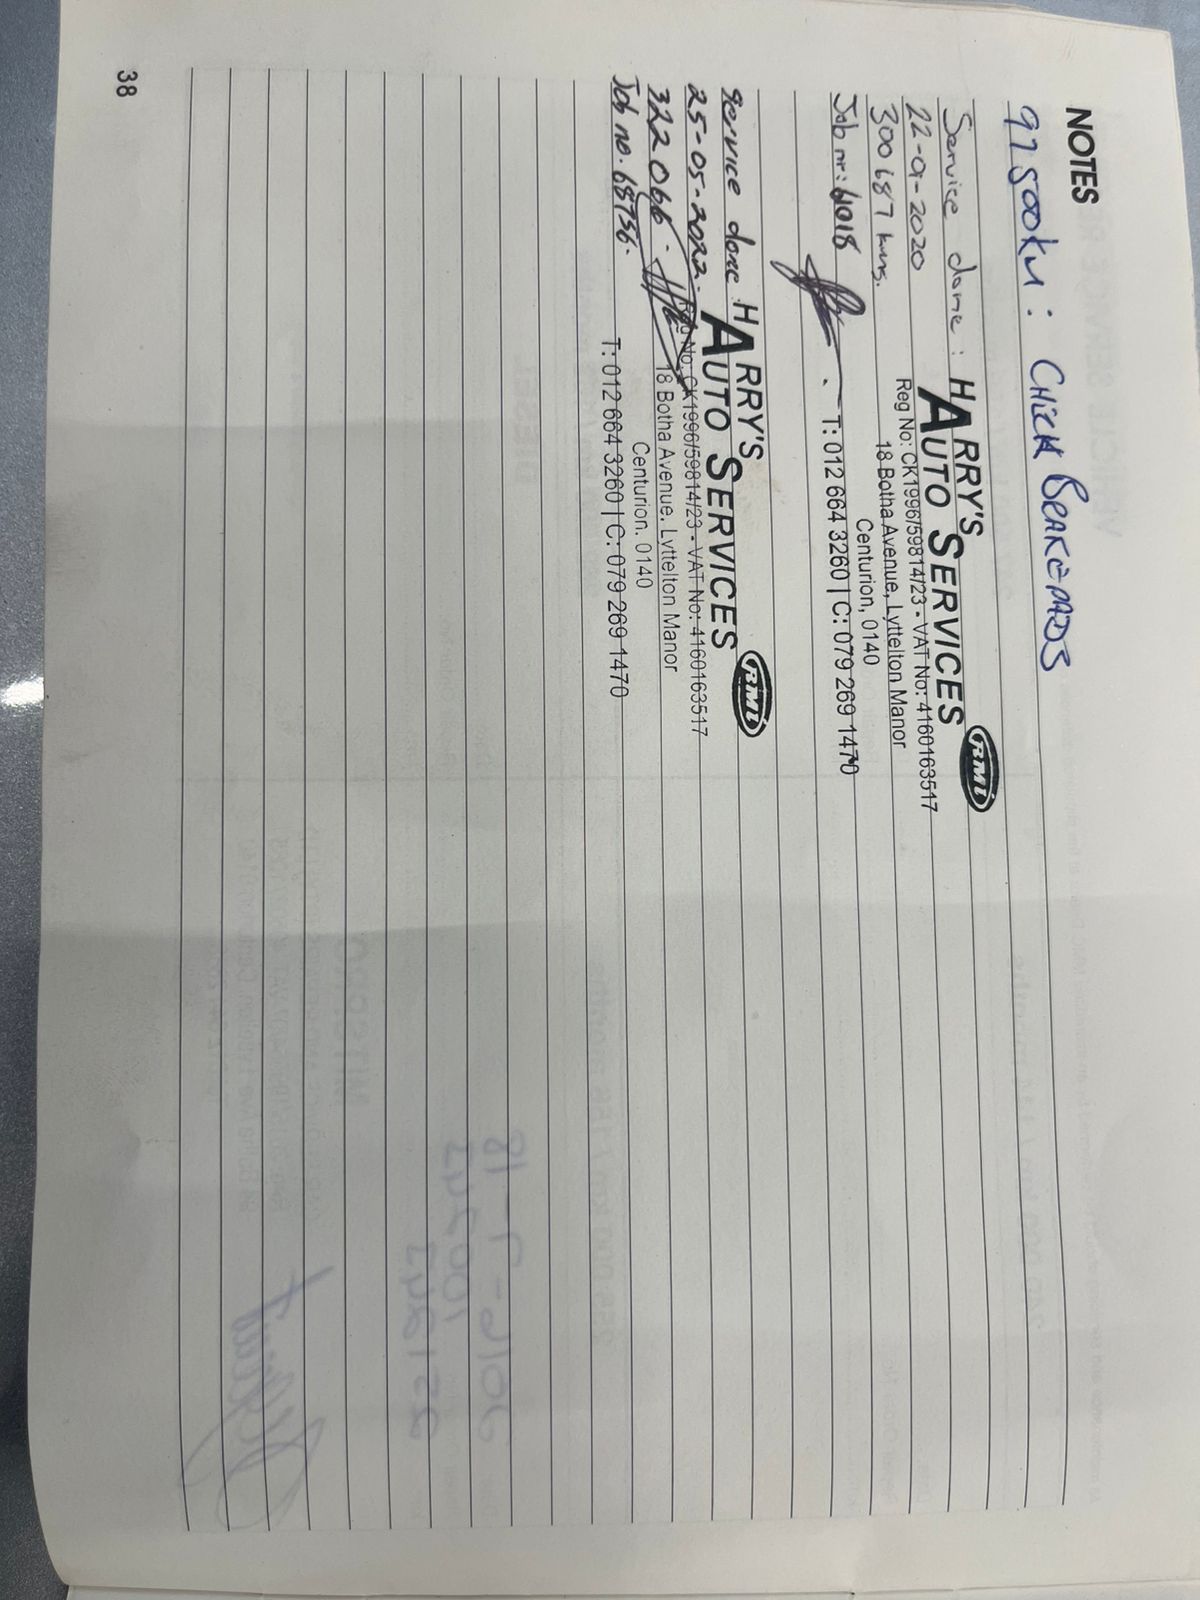 NOTES
97500km : CHECK BRAKEPADS
Service done :
22-01-2020
300 687 kms.
Job nr: 61018
HARRY'S
AUTO SERVICES
RMI
Reg No: CK1996/59814/23 - VAT No: 4160163517
18 Botha Avenue, Lyttelton Manor
Centurion, 0140
T: 012 664 3260 | C: 079 269 1470
Service done
25-05-2022.
322066.
Job no. 68756.
HARRY'S
AUTO SERVICES
RMI
Reg No: CK1996/59814/23 - VAT No: 4160163517
18 Botha Avenue, Lyttelton Manor
Centurion, 0140
T: 012 664 3260 | C: 079 269 1470
38